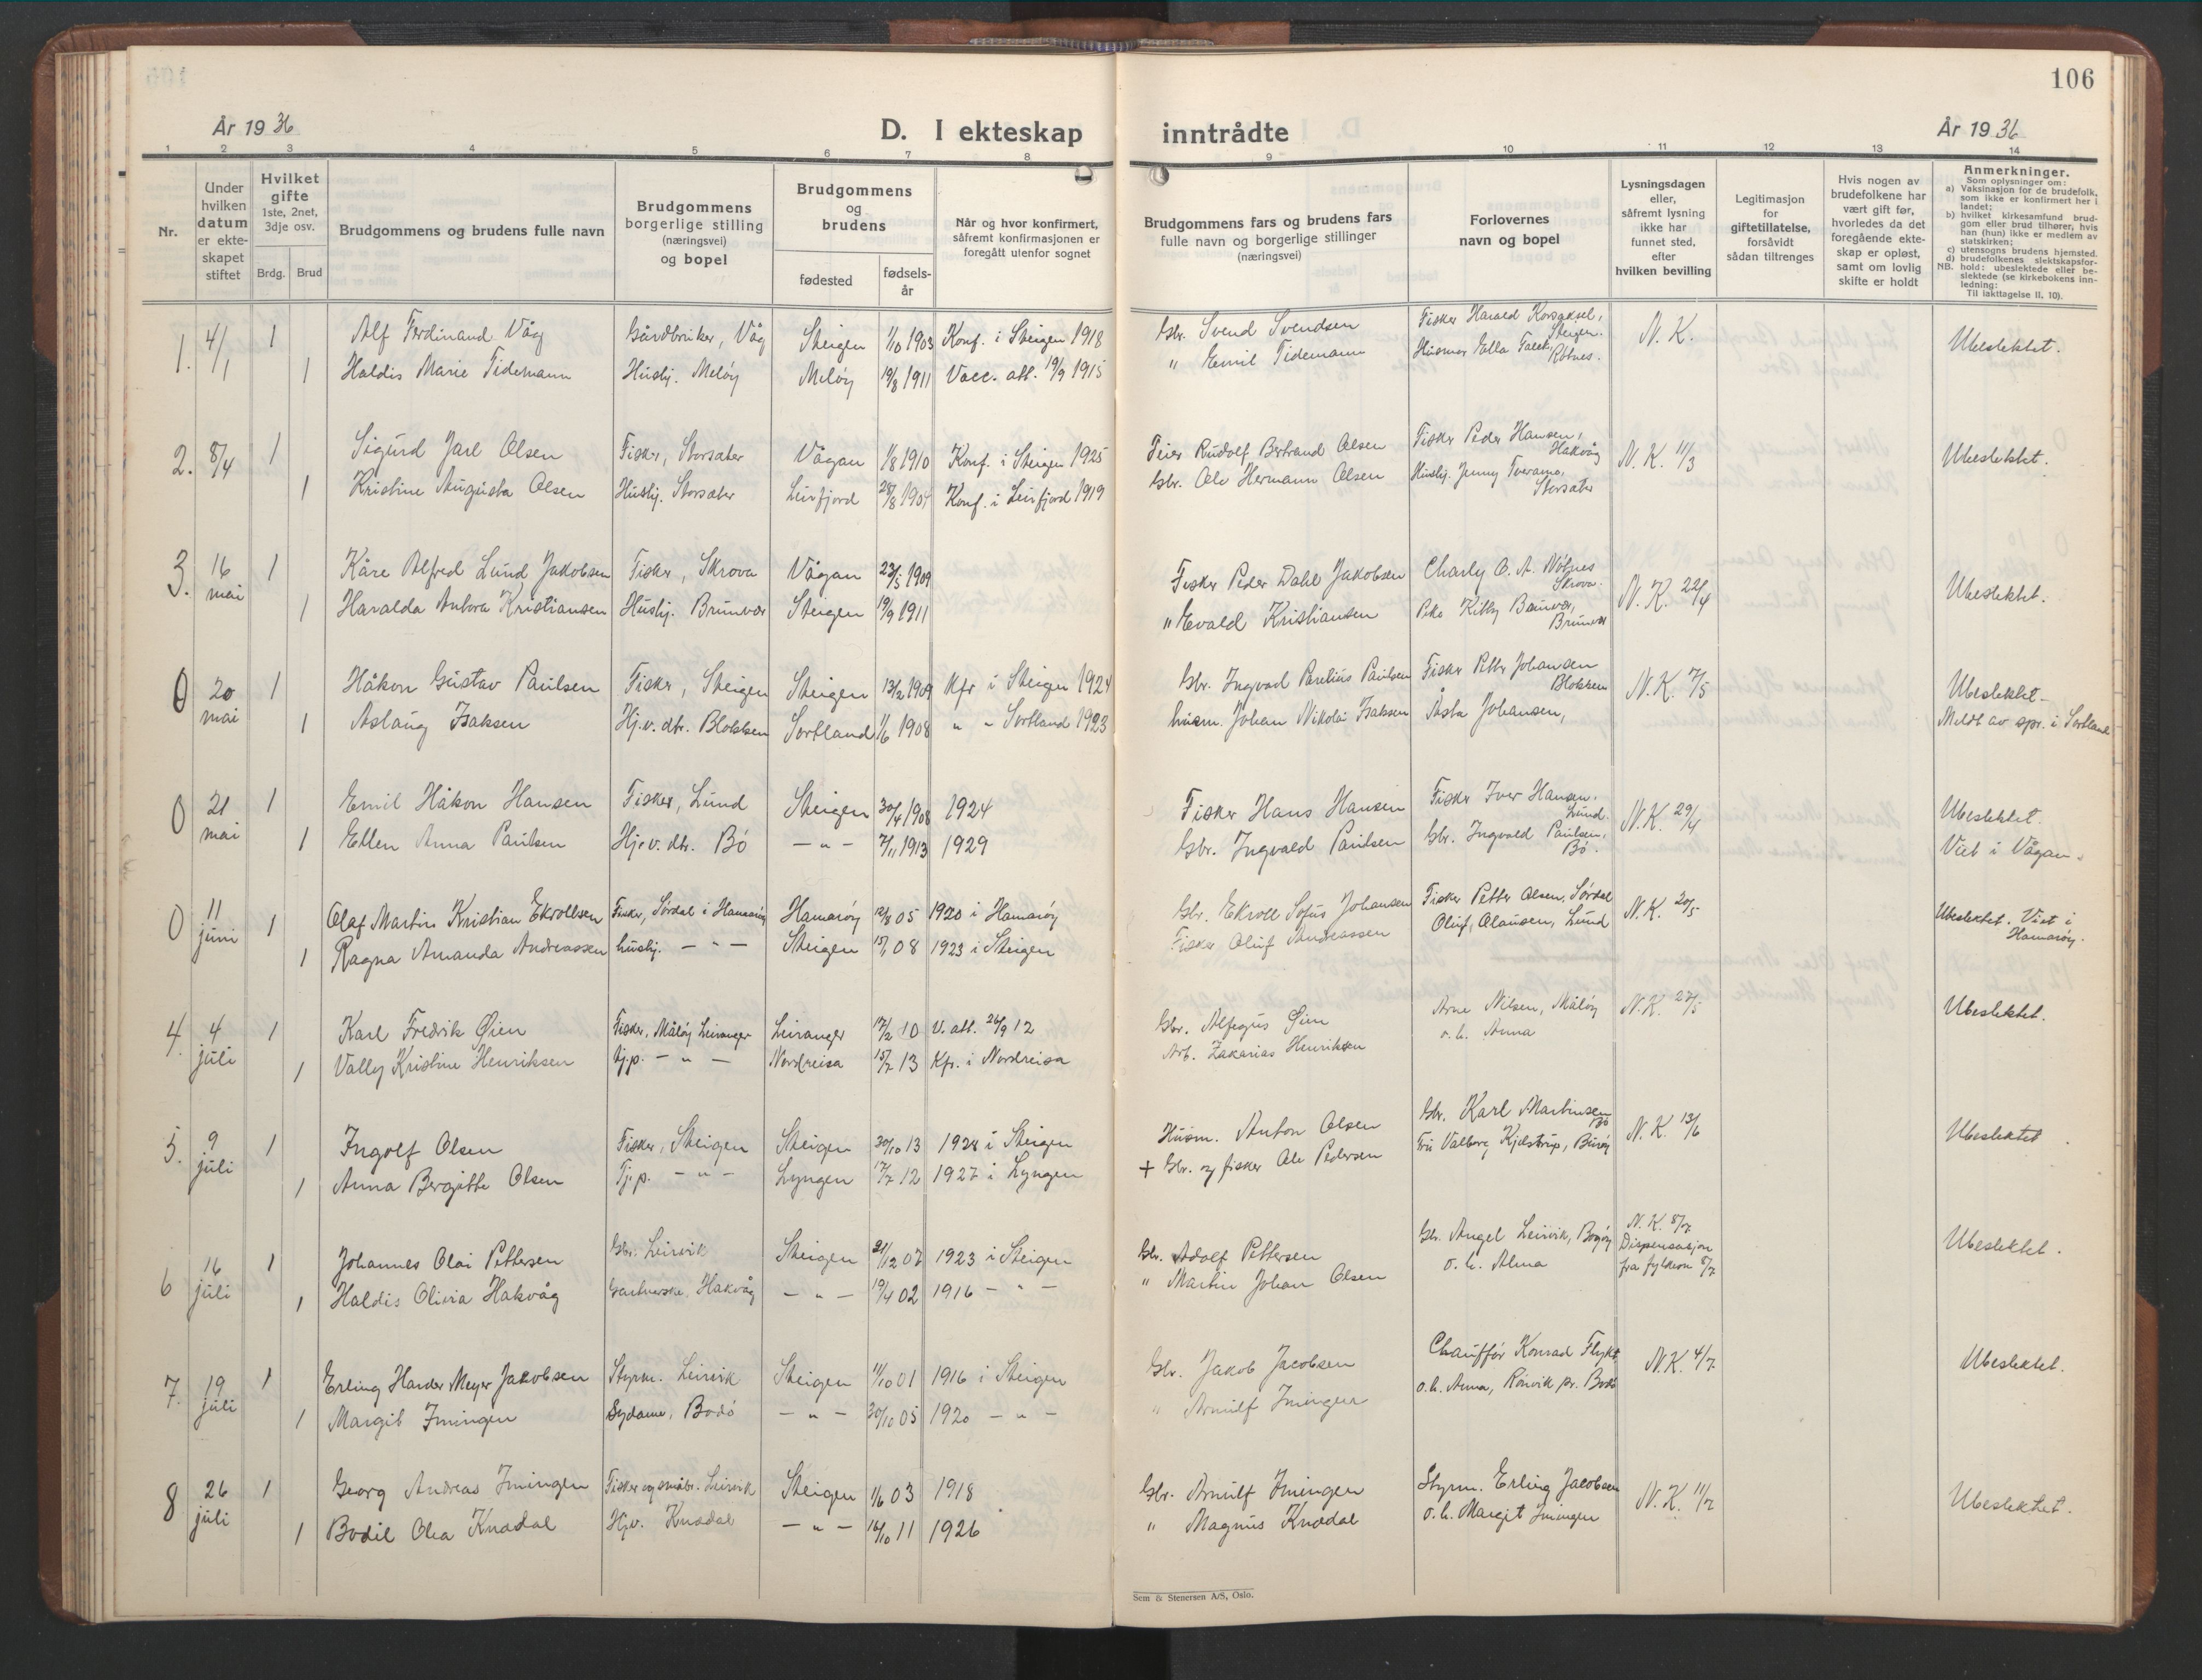 106
År 1936
D. I ekteskap inntrådte
År 1936
1 2 3 4 5 6 7 8 9 10 11 12 13 14
Nr.
Under hvilken datum er ekte-skapet stiftet
Hvilket gifte 1ste, 2net, 3dje osv.
Brdg. Brud
Brudgommens og brudens fulle navn
Brudgommens borgerlige stilling (næringsvei) og bopel
Brudgommens og brudens
fødested
fødsels-år
Når og hvor konfirmert, såfremt konfirmasjonen er foregått utenfor sognet
Brudgommens fars og brudens fars fulle navn og borgerlige stillinger (næringsvei)
Forlovernes navn og bopel
Lysningsdagen eller, såfremt lysning ikke har funnet sted, efter hvilken bevilling
Legitimasjon for giftetillatelse, forsåvidt sådan tiltrenges
Hvis nogen av brudefolkene har vært gift før, hvorledes da det foregående ekte-skap er opløst, samt om lovlig skifte er holdt
Anmerkninger.
Som oplysninger om:
a) Vaksinasjon for de brudefolk, som ikke er konfirmert her i landet;
b) hvilket kirkesamfund brud-gom eller brud tilhører, hvis han (hun) ikke er medlem av statskirken;
c) utensogns brudens hjemsted.
d) brudefolkenes slektskapsfor-hold: ubeslektede eller be-slektede (se kirkebokens inn-ledning:
NB.
Til iakttagelse II, 10).
1. 4/1 1 Alf Ferdinand Våg Gårdbruker, Våg Steigen 1/10 1903 Konf. i Steigen 1918 Gbr. Svend Svendsen Fisker Harald Korsaksel, Steigen. N.K. Ubeslektet.
1 Haldis Marie Tidemann Husbj. Meløy Meløy 19/8 1911 Vacc. att. 19/9 1915 " Emil Tidemann Husmor Ella Falch,
2. 8/4 1 Sigurd Jarl Olsen Fisker, Storsæter Vågan 1/8 1910 Konf. i Steigen 1925 Feier Rudolf Bertrand Olsen Fisker Peder Hansen, Hakvåg N.K. 11/3 Ubeslektet.
1 Kristine Augusta Olsen Husbj. Storsæter Leirfjord 1904 Konf. i Leirfjord 1919 Gbr. Ole Hermann Olsen Husbj. Jenny Tveramo, Storsæter
3. 16 mai 1 Kåre Alfred Lund Jakobsen Fisker, Skrova Vågan 23/5 1909 Fisker Peder Dahl Jakobsen Charly O. A. Skrova. N.K. 22/4 Ubeslektet.
1 Haralda Antora Kristiansen Husbj. Brunvær Steigen 19/9 1911 " Evald Kristiansen Pike Kitty Brunvær
0 20 mai 1 Håkon Gustav Paulsen Fisker, Steigen Steigen 13/2 1909 Kfr i Steigen 1924 Gbr. Ingvad Parelius Paulsen Fisker Petter Johansen Blokken N.K. 7/5 Ubeslektet
1 Aslaug Isaksen Hj.v. dtr. Blokken Sortland 1/6 1908 " " Sortland 1923 husm. Johan Nikolai Isaksen Åsta Johansen, Meldt av spr. i Sortland
0 21 mai 1 Emil Håkon Hansen Fisker, Lund Steigen 30/4 1908 1924 Fisker Hans Hansen Fisker Iver Hansen. Lund. N.K. 29/4 Ubeslektet.
1 Ellen Anna Paulsen Hj.v. dtr. Bø — " — 7/11 1913 1929 Gbr. Ingvald Paulsen Gbr. Ingvald Paulsen, Bø. Viet i Vågan.
0 11 juni 1 Olaf Martin Kristian Ekrollsen Fisker, Sørdal i Hamarøy Hamarøy 05 1920 i Hamarøy Gbr. Ekroll Sofus Johansen Fisker Petter Olsen, Sørdal N.K. 20/5 Ubeslektet. Viet i Hamarøy.
1 Ragna Amanda Andreassen husbj. — " — Steigen 08 1923 i Steigen Fisker Oluf Andreassen Oluf Olausen, Lund
4. 4 juli 1 Karl Fredrik Øien Fisker, Måløy Leiranger Leiranger 17/2 10 V. att. 26/9 12 Gbr. Alfegus Øien Arne Nilsen, Måløy N.K. 27/5 Ubeslektet.
1 Vally Kristine Henriksen tj.p. — " — Nordreisa 15/7 13 Kfr. i Nordreisa Arb. Zakarias Henriksen o.h. Anna
5. 9 juli 1 Ingolf Olsen Fisker, Steigen Steigen 30/10 13 1928 i Steigen Husm. Anton Olsen Gbr. Karl Martinsen Bø N.K. 13/6 Ubeslektet
1 Anna Bergitte Olsen Tj.p. — " — Lyngen 17/7 12 1927 i Lyngen + Gbr. og fisker Ole Pedersen Fru Valborg Kjelstrup,
6 16 juli 1 Johannes Olai Pettersen Gbr. Leirvik Steigen 21/12 07 1923 i Steigen Gbr. Adolf Pettersen Gbr. Angel Leirvik, Bogøy N.K. 8/7 Dispensasjon fra fylkesm 8/7 Ubeslektet.
1 Haldis Olivia Hakvåg Gartnerske, Hakvåg — " — 19/4 02 1916 — " — " Martin Johan Olsen o.h. Alma
7. 19 juli 1 Erling Harder Meyer Jakobsen Styrm. Leirvik Steigen 11/10 01 1916 i Steigen Gbr. Jakob Jacobsen Chauffør Konrad Flykt N.K. 4/7 Ubeslektet.
1 Margit Imingen Sydame, Bodø — " — 30/10 05 1920 — " — " Arnulf Imingen o.h. Anna, Rønvik pr. Bodø
8 26 juli 1 Georg Andreas Imingen Fisker og småbr. Leirvik Steigen 1/6 03 1918 Gbr. Arnulf Imingen Styrm. Erling Jacobsen N.K. 11/7 Ubeslektet.
1 Bodil Olea Knædal Hj.v. Knædal — " — 16/10 11 1926 " Magnus Knædal o.h. Margit Imingen
Sem & Stenersen A/S, Oslo.